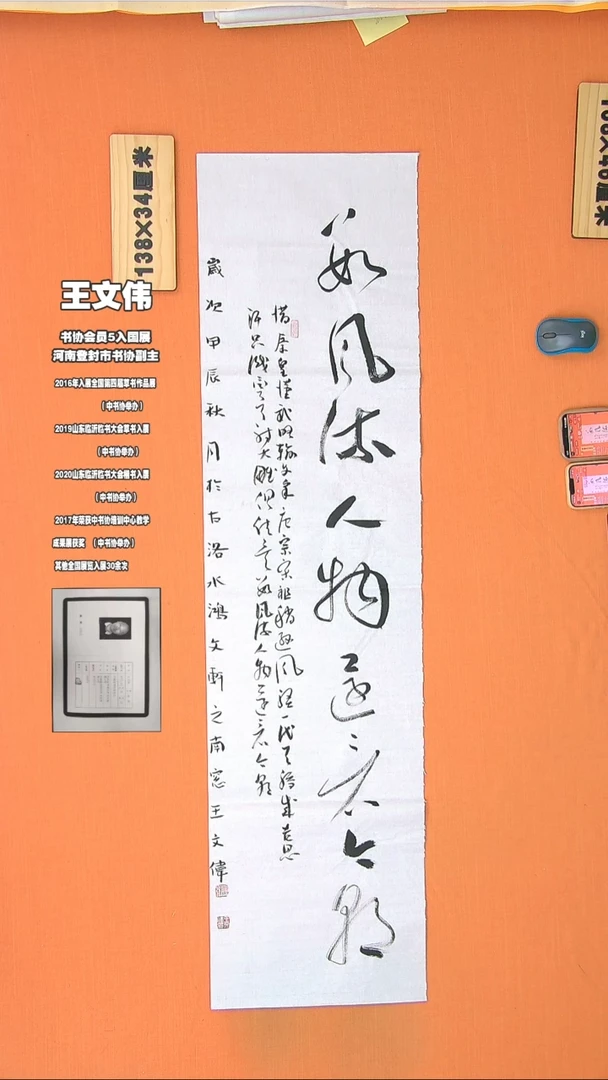 138X34厘米
王文伟
书协会员5入国展
河南登封市书协副主
2016年入展全国第四届草书作品展
（中书协举办）
2019山东临沂临书大会草书入展
（中书协举办）
2020山东临沂临书大会楷书入展
（中书协举办）
2017年荣获中书协培训中心教学
成果展获奖 （中书协举办）
其他全国展览入展30余次
數風流人物還看今朝
惜秦皇漢武略輸文采唐宗宋祖稍遜風騷一代天驕成吉思
汗只識彎弓射大雕俱往矣數風流人物還看今朝
歲次甲辰秋月於古洛水鴻文軒之南窓王文偉